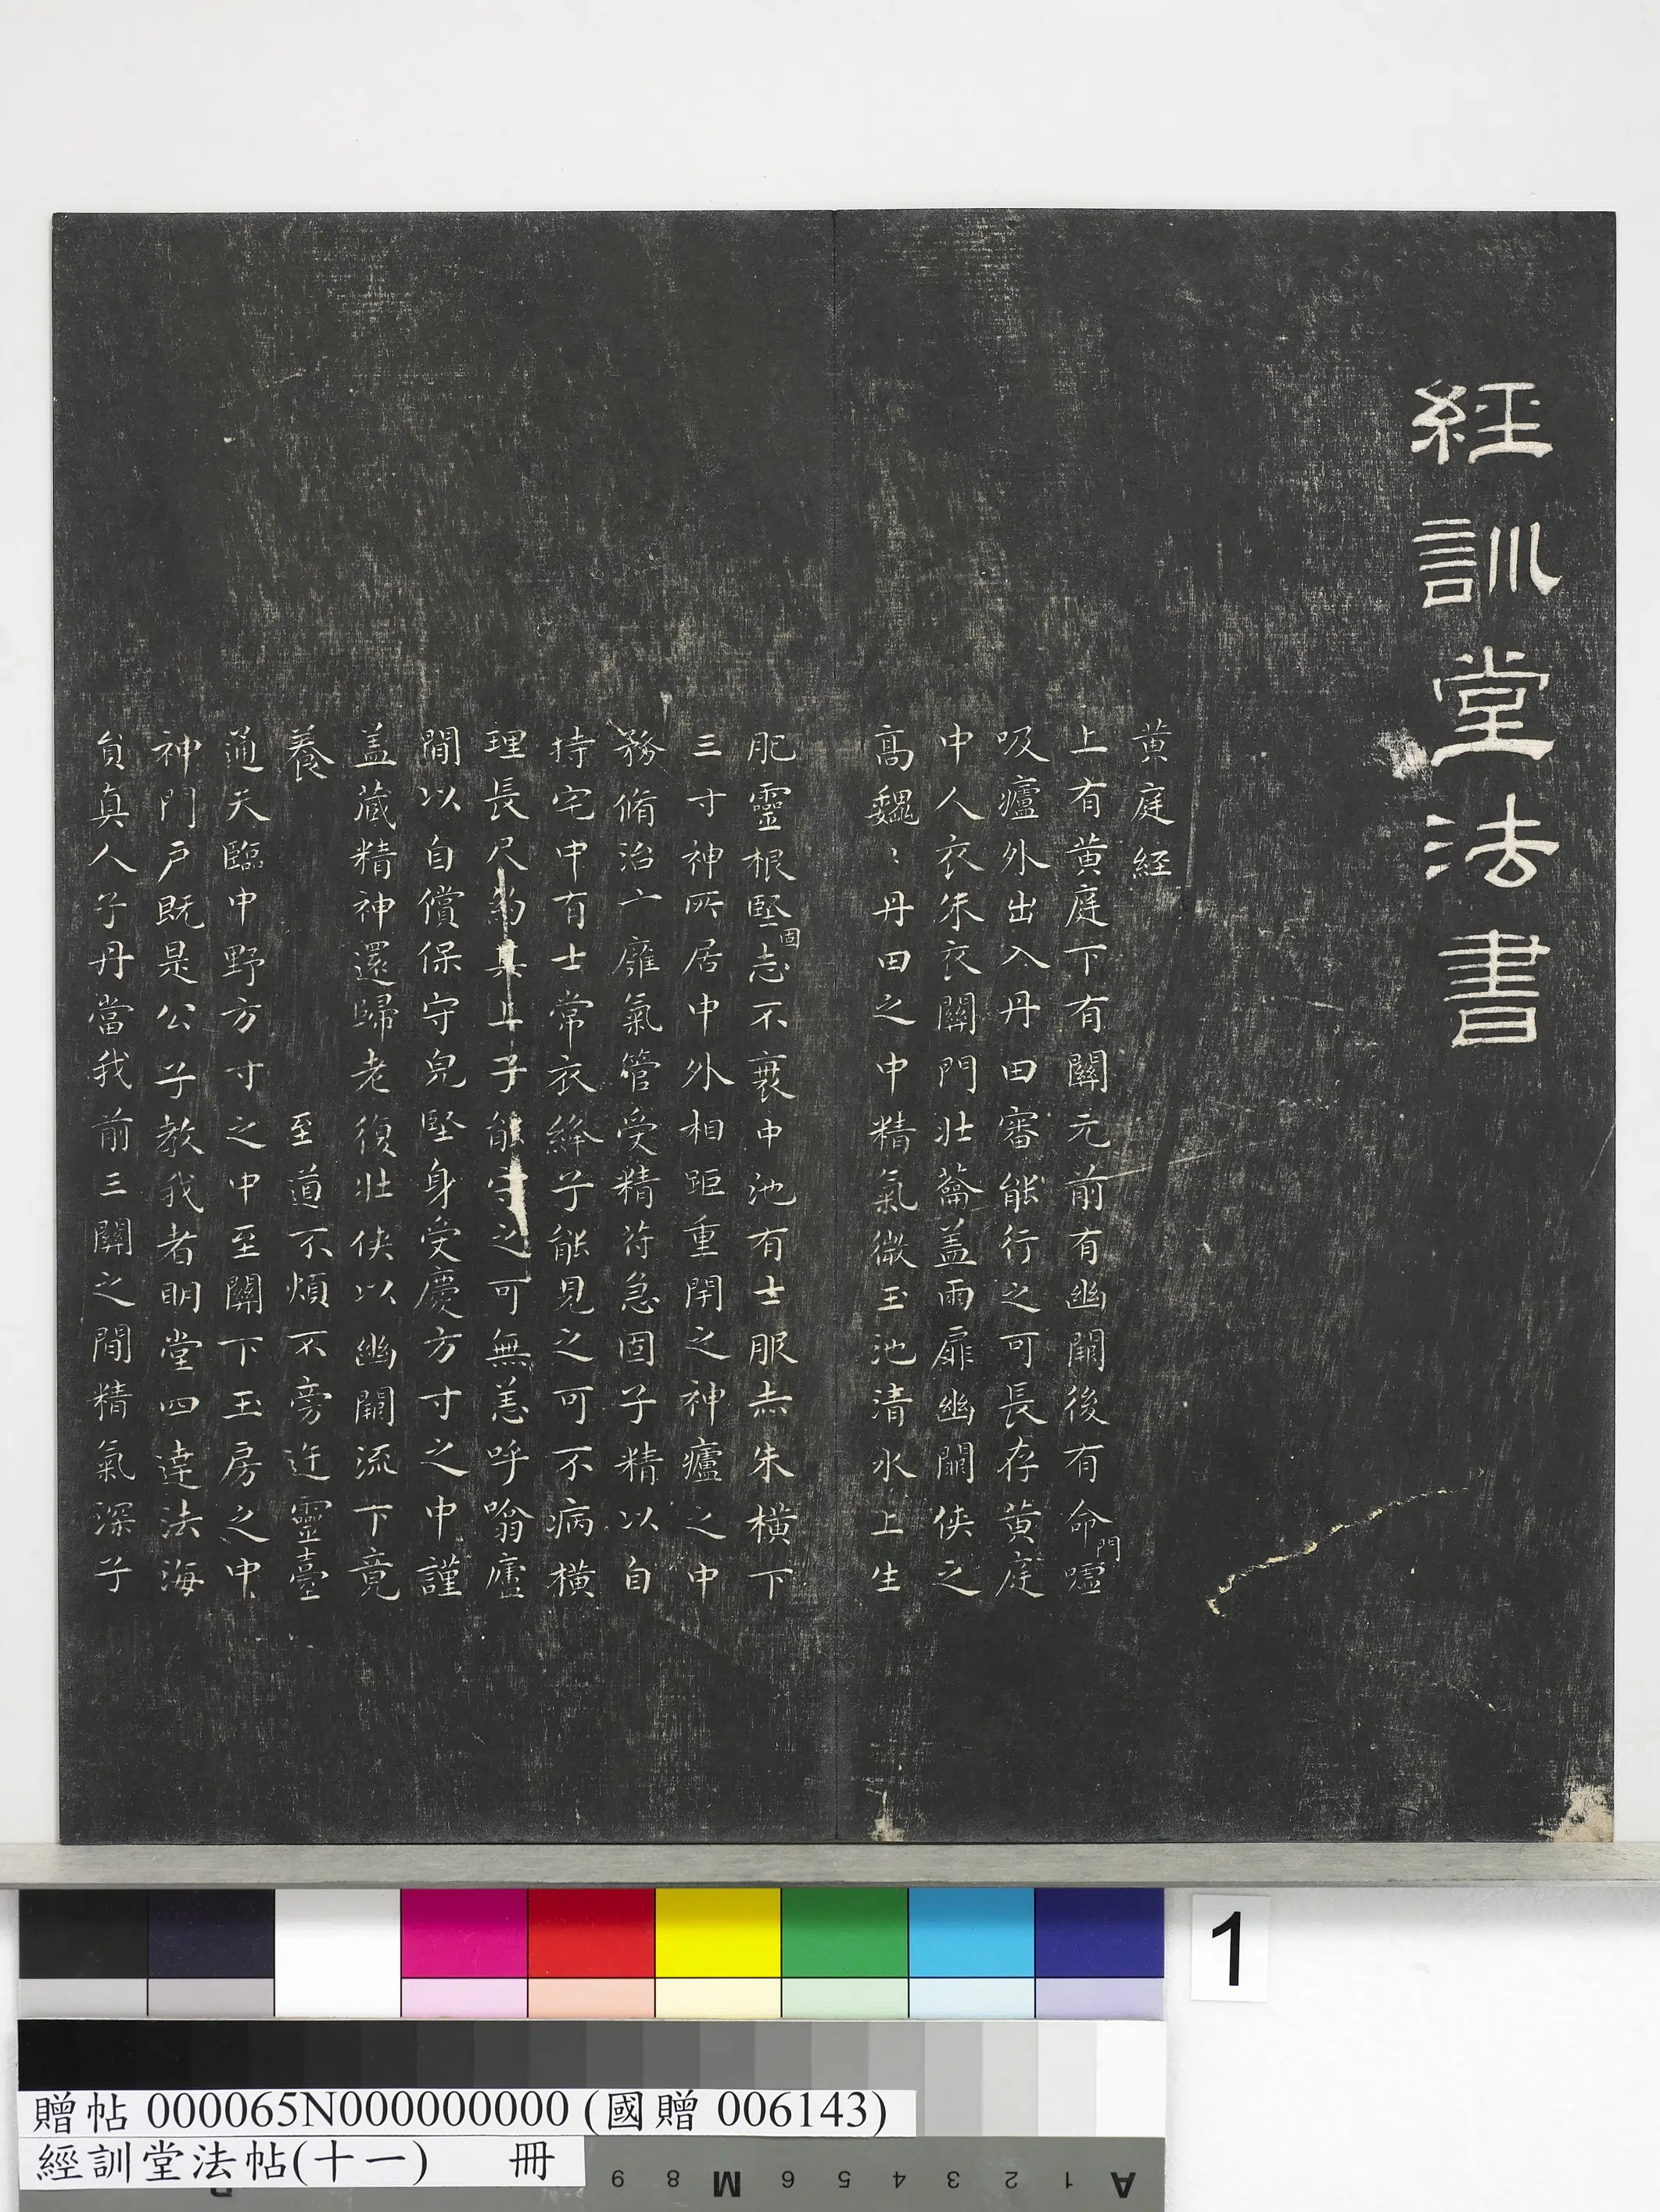 經訓堂法書
黃庭経
上有黃庭下有關元前有幽闕後有命門噓
吸廬外出入丹田審能行之可長存黃庭
中人衣朱衣關門壯蘥盖兩扉幽闕俠之
高巍〻丹田之中精氣微玉池清水上生
肥靈根堅固志不衰中池有士服赤朱橫下
三寸神所居中外相距重閉之神廬之中
務脩治亠廱氣管受精符急固子精以自
持宅中有士常衣絳子能見之可不病橫
理長尺約其上子能守之可無恙呼噏廬
間以自償保守皃堅身受慶方寸之中謹
盖蔵精神還歸老復壯俠以幽闕流下竟
養 至道不煩不旁迕靈臺
通天臨中野方寸之中至關下玉房之中
神門戶既是公子教我者明堂四達法海
負真人子丹當我前三關之間精氣深子
1
贈帖 000065N000000000 (國贈 006143)
經訓堂法帖(十一) 冊
A 1 2 3 4 5 6 M 8 9